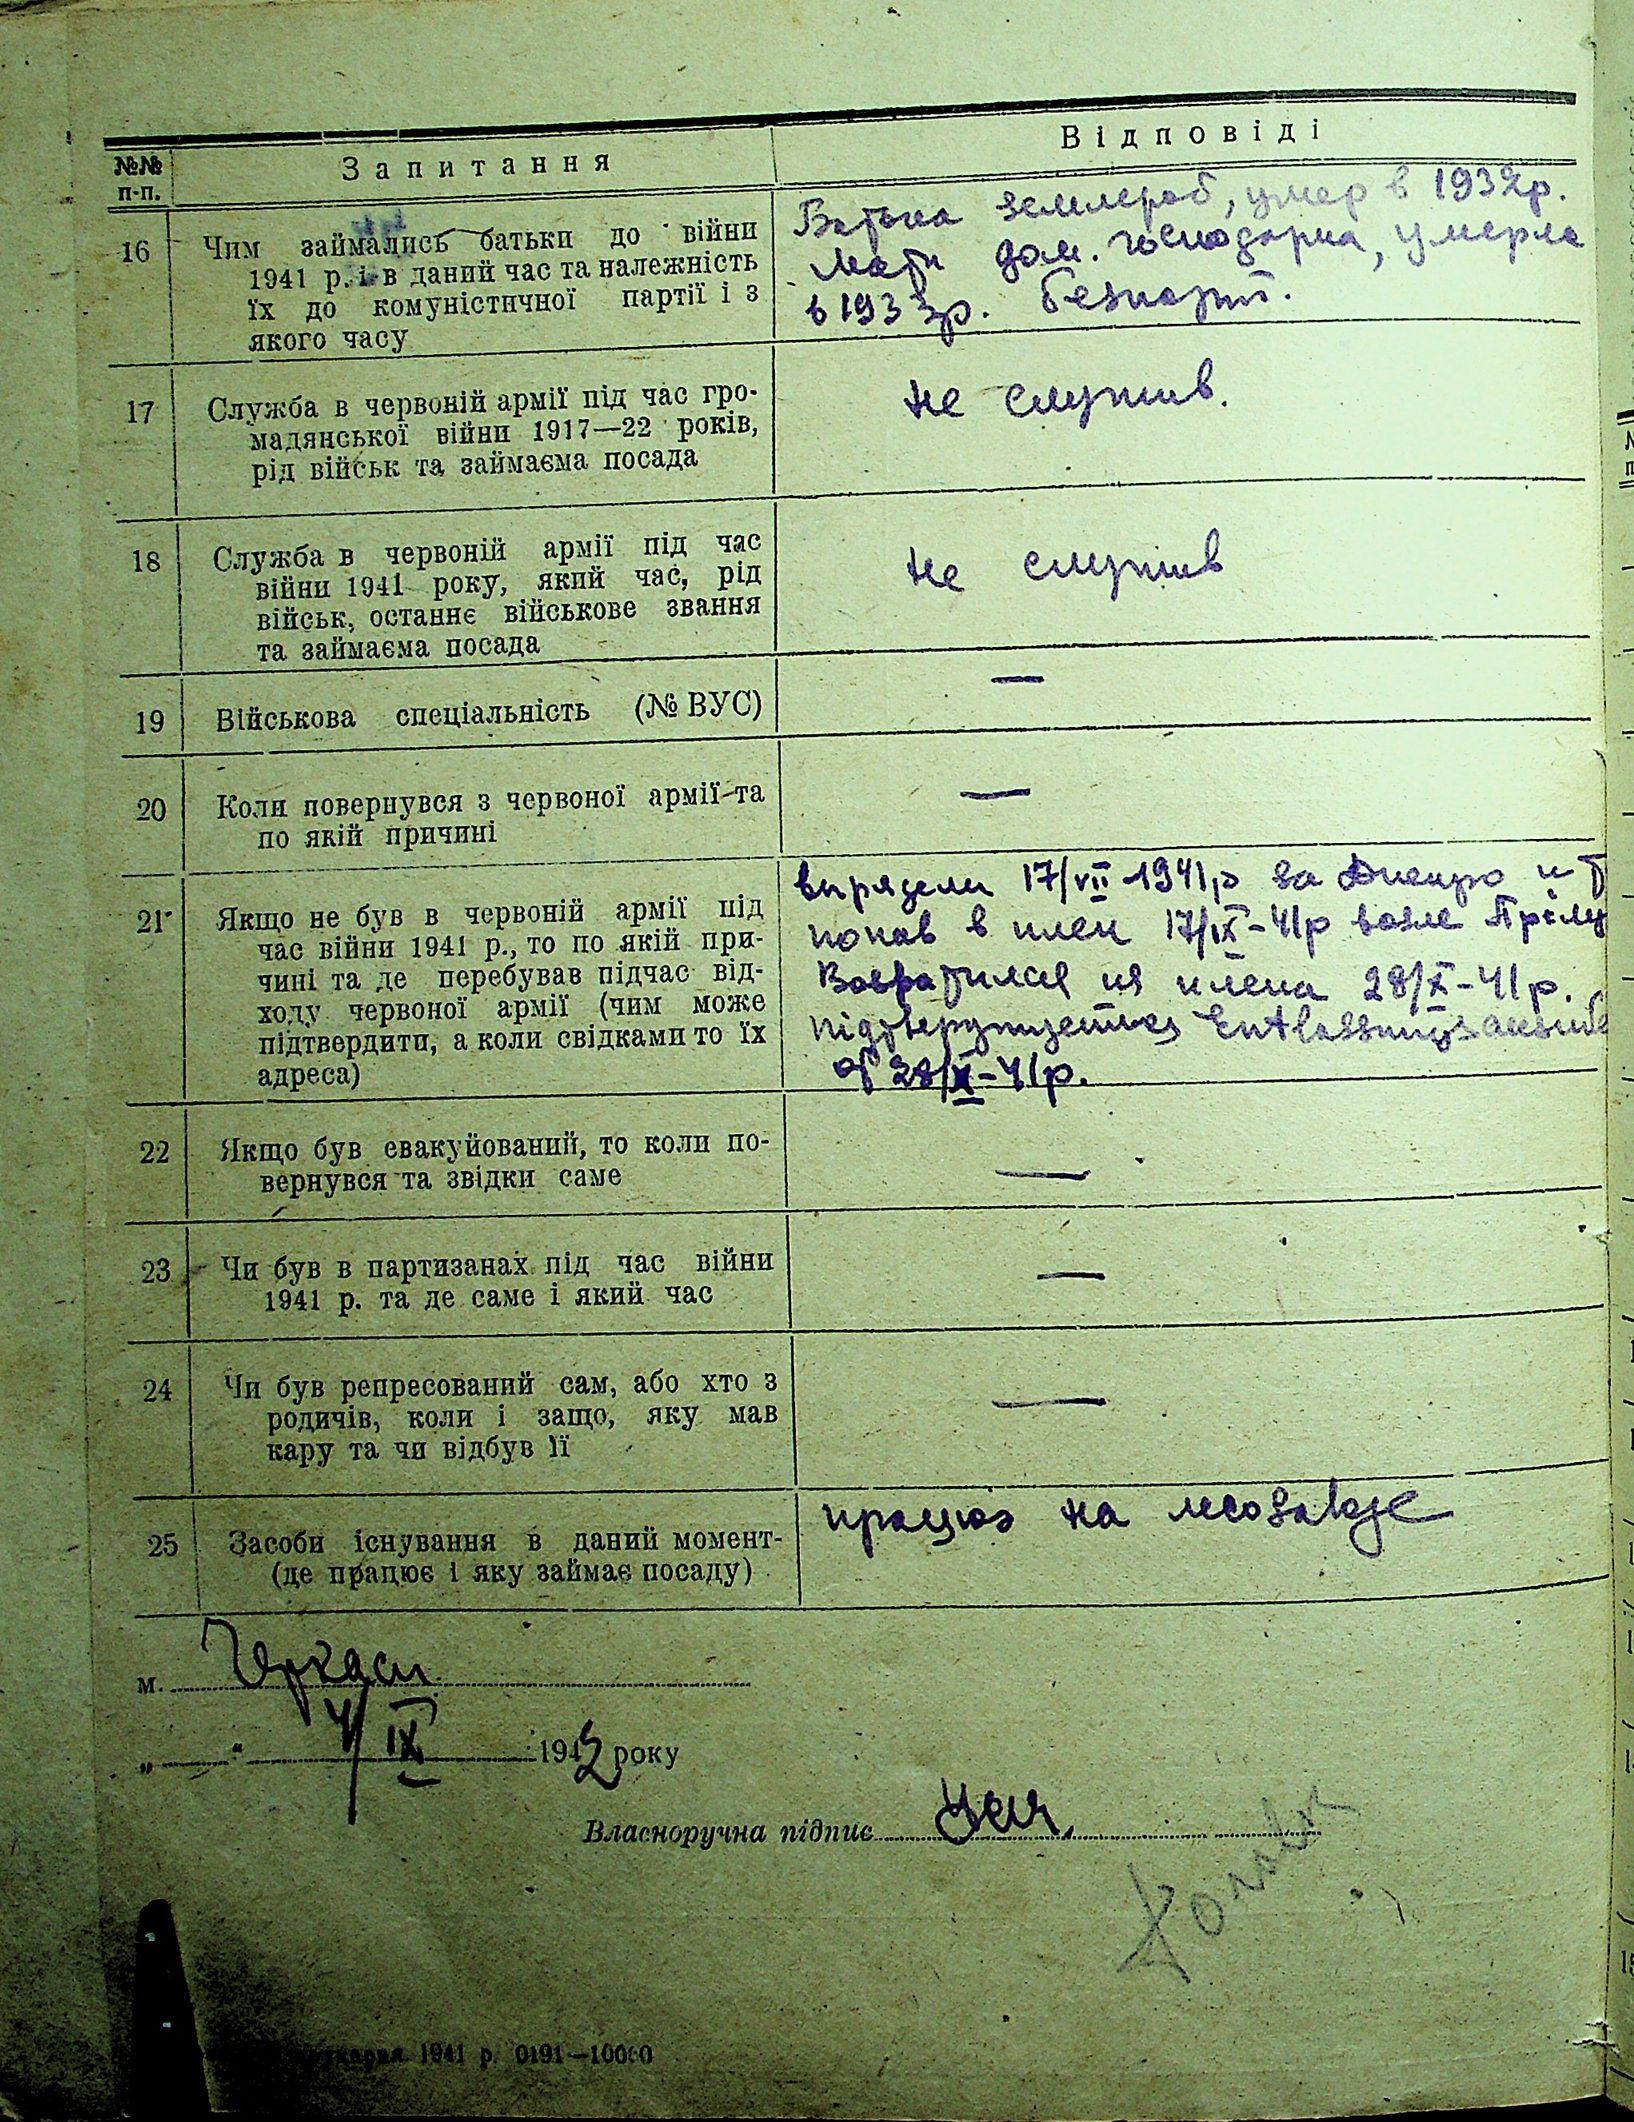 №№ п-п.
Запитання
Відповіді
16
Чим займались батьки до війни
1941 р. і в даний час та належність
їх до комуністичної партії і з
якого часу
Батько землероб, умер в 1932р.
Мати дом. господарка, умерла
в 1933р. безпарт.
17
Служба в червоній армії під час гро-
мадянської війни 1917—22 років,
рід військ та займаєма посада
не служив.
18
Служба в червоній армії під час
війни 1941 року, який час, рід
військ, останнє військове звання
та займаєма посада
не служив
19
Військова спеціальність (№ ВУС)
—
20
Коли повернувся з червоної армії та
по якій причині
—
21
Якщо не був в червоній армії під
час війни 1941 р., то по якій при-
чині та де перебував підчас від-
ходу червоної армії (чим може
підтвердити, а коли свідками то їх
адреса)
17/VII-1941р за Днепро и
попав в плен 17/IX-41р возле
Возвратился из плена 28/X-41р.
28/X-41р.
22
Якщо був евакуйований, то коли по-
вернувся та звідки саме
—
23
Чи був в партизанах під час війни
1941 р. та де саме і який час
—
24
Чи був репресований сам, або хто з
родичів, коли і защо, яку мав
кару та чи відбув її
—
25
Засоби існування в даний момент-
(де працює і яку займає посаду)
працюю на
м. Черкаси
„ “ 4/IX 1942 року
Власноручна підпис
1941 р. 0191—10000